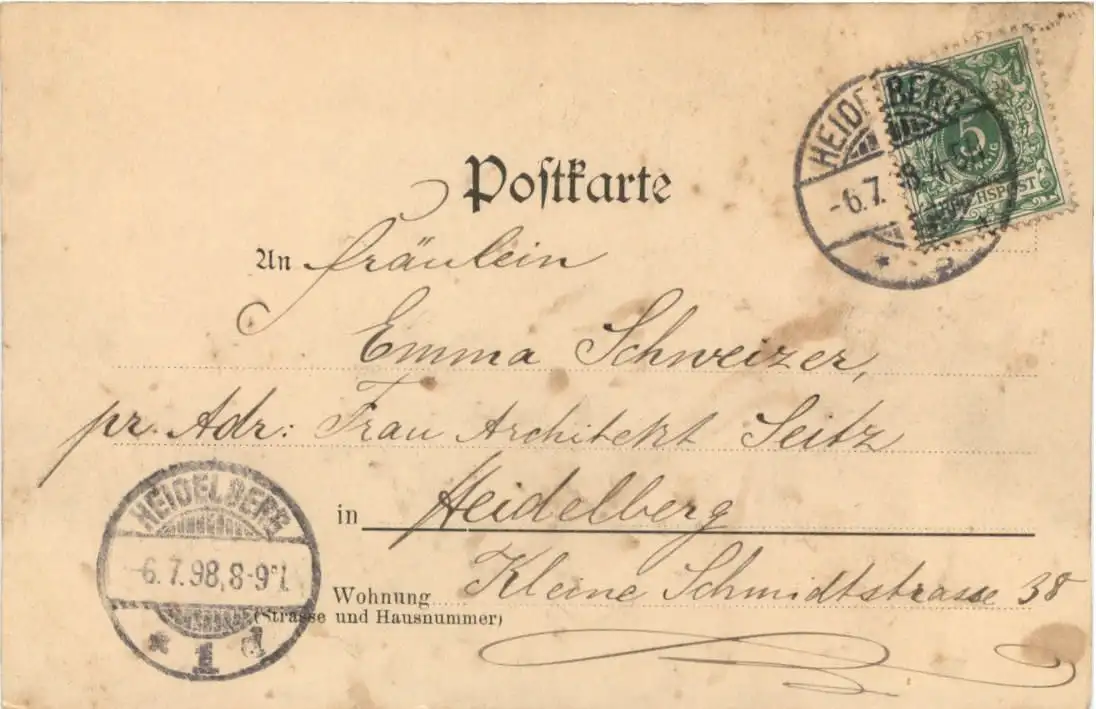 Postkarte
HEIDELBERG
-6.7. 8.4-5N
5
REICHSPOST
An Fräulein
Emma Schweizer,
pr. Adr: Frau Architekt Seitz
in Heidelberg
HEIDELBERG
-6.7.98,8-9N.
* 1 d
Wohnung Kleine Schmidtstrasse 38
(Strasse und Hausnummer)